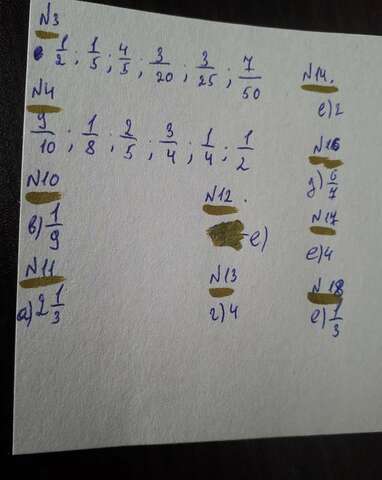 N3
1/2 ; 1/5 ; 4/5 ; 3/20 ; 3/25 ; 7/50
N4
9/10 ; 1/8 ; 2/5 ; 3/4 ; 1/4 ; 1/2
N10
в) 1/9
N11
а) 2 1/3
N12.
е)
N13
г) 4
N14.
е) 2
N16
д) 6/7
N17
е) 4
N18
е) 1/3